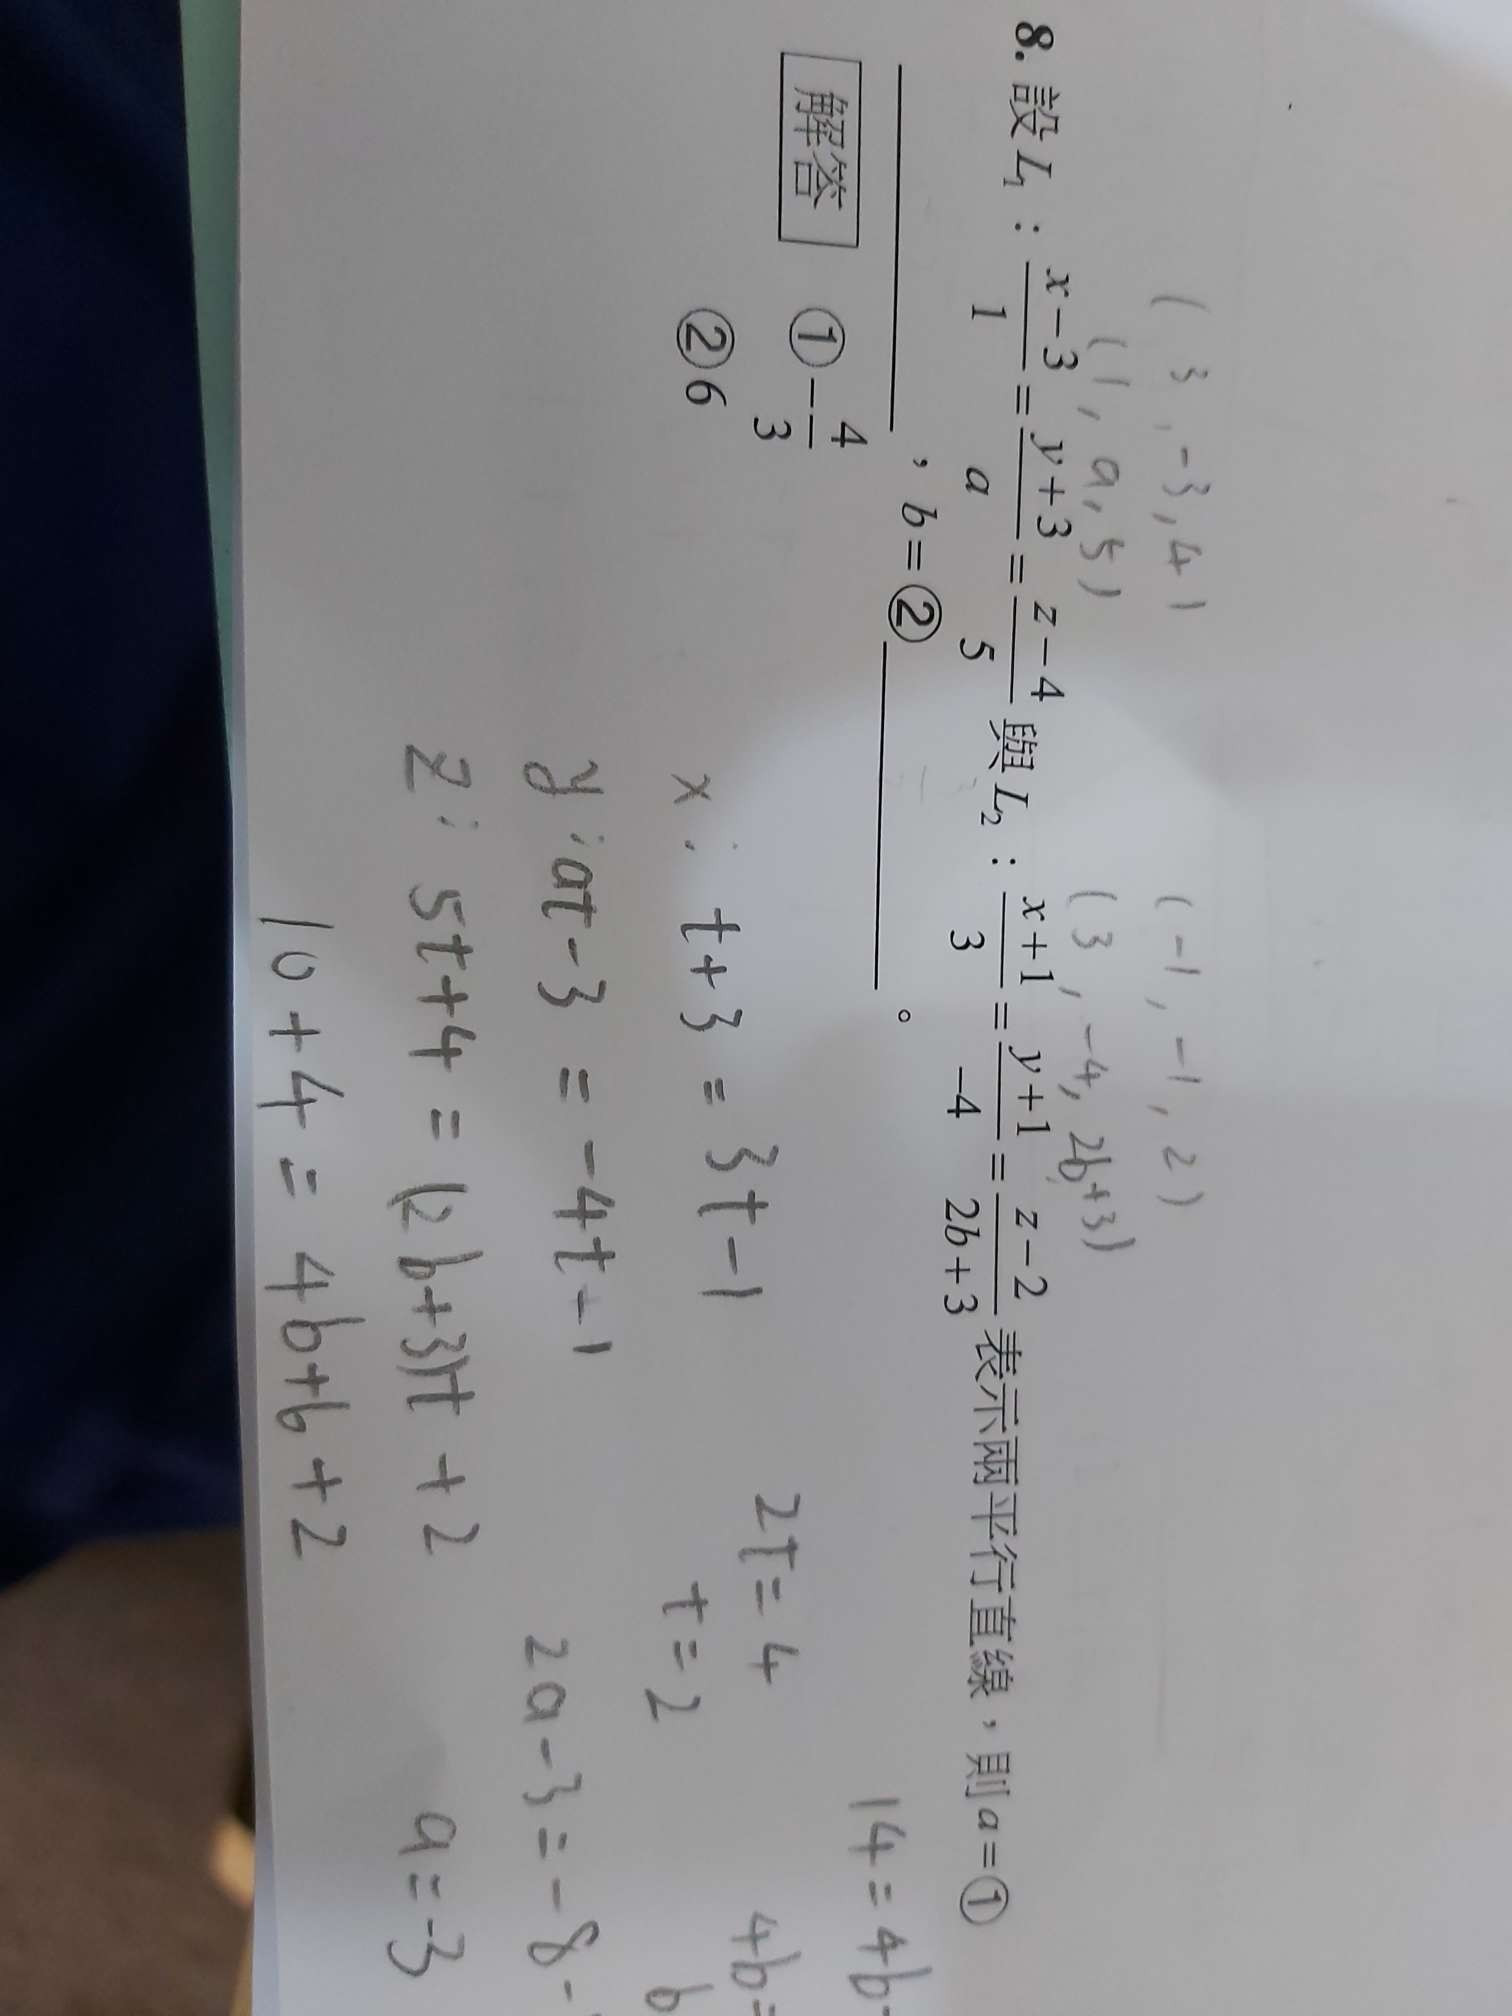 ( 3 , -3 , 4 )
(-1, -1, 2)
(1, a, 5)
(3, -4, 2b+3)
8. 設 L₁ : (x-3)/1 = (y+3)/a = (z-4)/5 與 L₂ : (x+1)/3 = (y+1)/-4 = (z-2)/(2b+3) 表示兩平行直線，則 a = ①
________，b = ②________。
解答 ① -4/3
② 6
x : t+3 = 3t-1
2t = 4
t = 2
y : at-3 = -4t-1
2a-3 = -8-
z : 5t+4 = (2b+3)t+2
a = -3
10+4 = 4b+6+2
14 = 4b
4b =
b